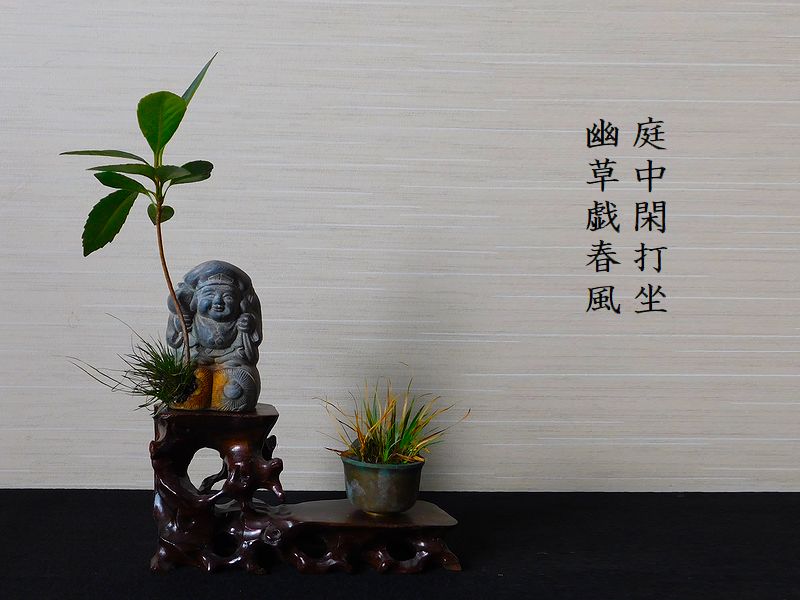 庭中閑打坐
幽草戯春風